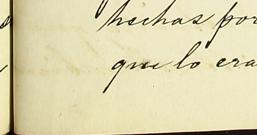 hechas por
que lo era